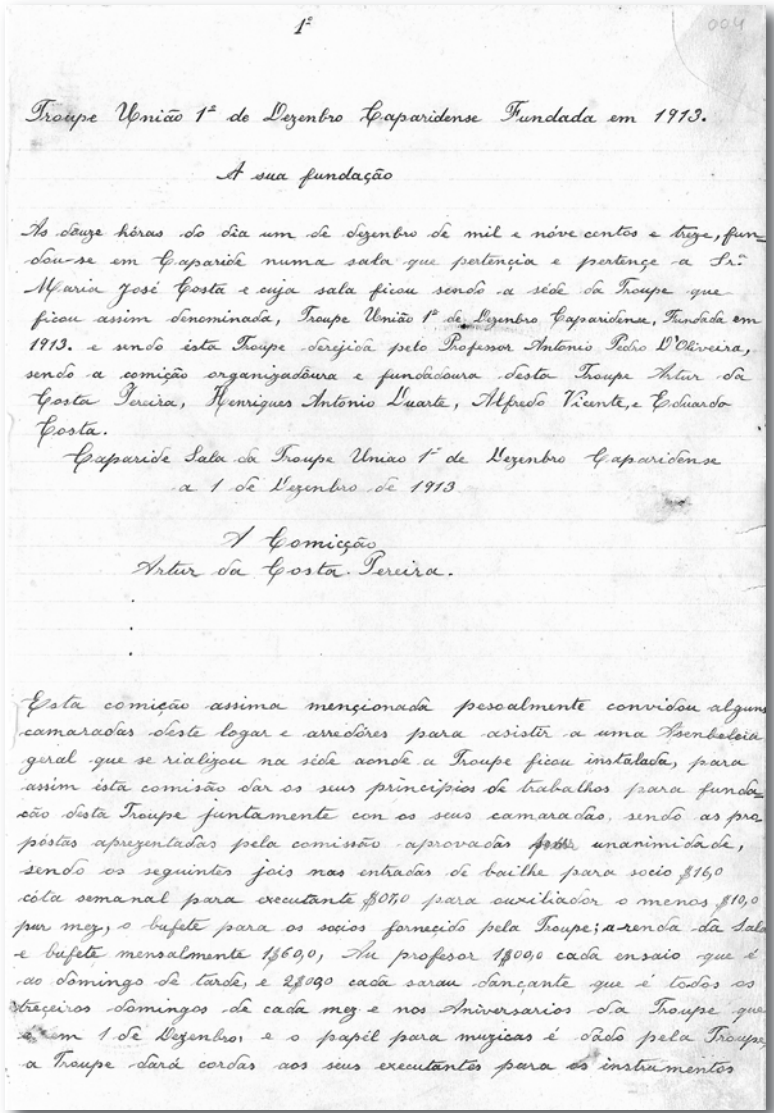 1º
004
Troupe União 1º de Dezenbro Caparidense Fundada em 1913.
A sua fundação
As douze hóras do dia um de dezenbro de mil e nóve centos e treze, fun=
dou-se em Caparide numa sala que pertençia e pertençe a Srª
Maria José Costa e cuja sala ficou sendo a séde da Troupe que
ficou assim denominada, Troupe União 1º de Dezenbro Caparidense, Fundada em
1913. e sendo ésta Troupe derejida pelo Professor Antonio Pedro D'Oliveira,
sendo a comição organizadoura e fundadoura desta Troupe Artur da
Costa Pereira, Henriques Antonio Duarte, Alfredo Vicente, e Eduardo
Costa.
Caparide Sala da Troupe Uniao 1º de Dezenbro Caparidense
a 1 de Dezenbro de 1913
A Comicção
Artur da Costa Pereira.
.
.
.
Esta comição assima mençionada pesoalmente convidou alguns
camaradas deste logar e arredóres para asistir a uma Asenbeleia
geral que se rializou na séde aonde a Troupe ficou instalada, para
assim ésta comisão dar os seus principios de trabalhos para funda=
cão desta Troupe juntamente con os seus camaradas. sendo as pro=
póstas aprezentadas pela comissão aprovadas unanimidade,
sendo os seguintes jois nas entradas de bailhe para socio $16,0
cóta semanal para executante $07,0 para auxiliador o menos $10,0
pur mez, o bufete para os socios fornecido pela Troupe; a renda da Sala
e bufete mensalmente 1$60,0, Au profesor 1$00,0 cada ensaio que é
ao domingo de tarde, e 2$00,0 cada sarau dançante que é todos os
treçeiros domingos de cada mez e nos Aniversarios da Troupe que
é em 1 de Dezenbro, e o papél para muzicas é dado pela Troupe,
a Troupe dará cordas aos seus executantes para os instrumentos